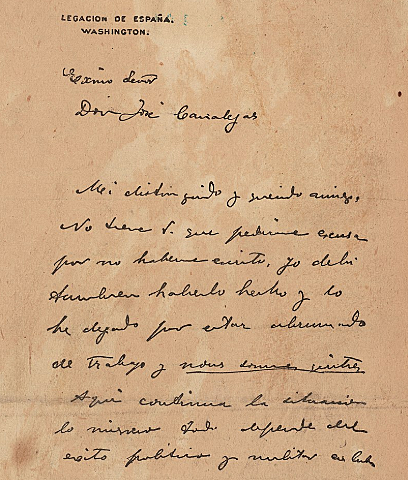 LEGACION DE ESPAÑA.
WASHINGTON.
Exmo Señor
Don José Canalejas
Mi distinguido y querido amigo,
No tiene V. que pedirme excusa
por no haberme escrito, yo debi
tambien haberlo hecho y lo
he dejado por estar abrumado
de trabajo y nous sommes quittes
Aqui continua la situacion
lo mismo todo depende del
exito politico y militar en Cuba